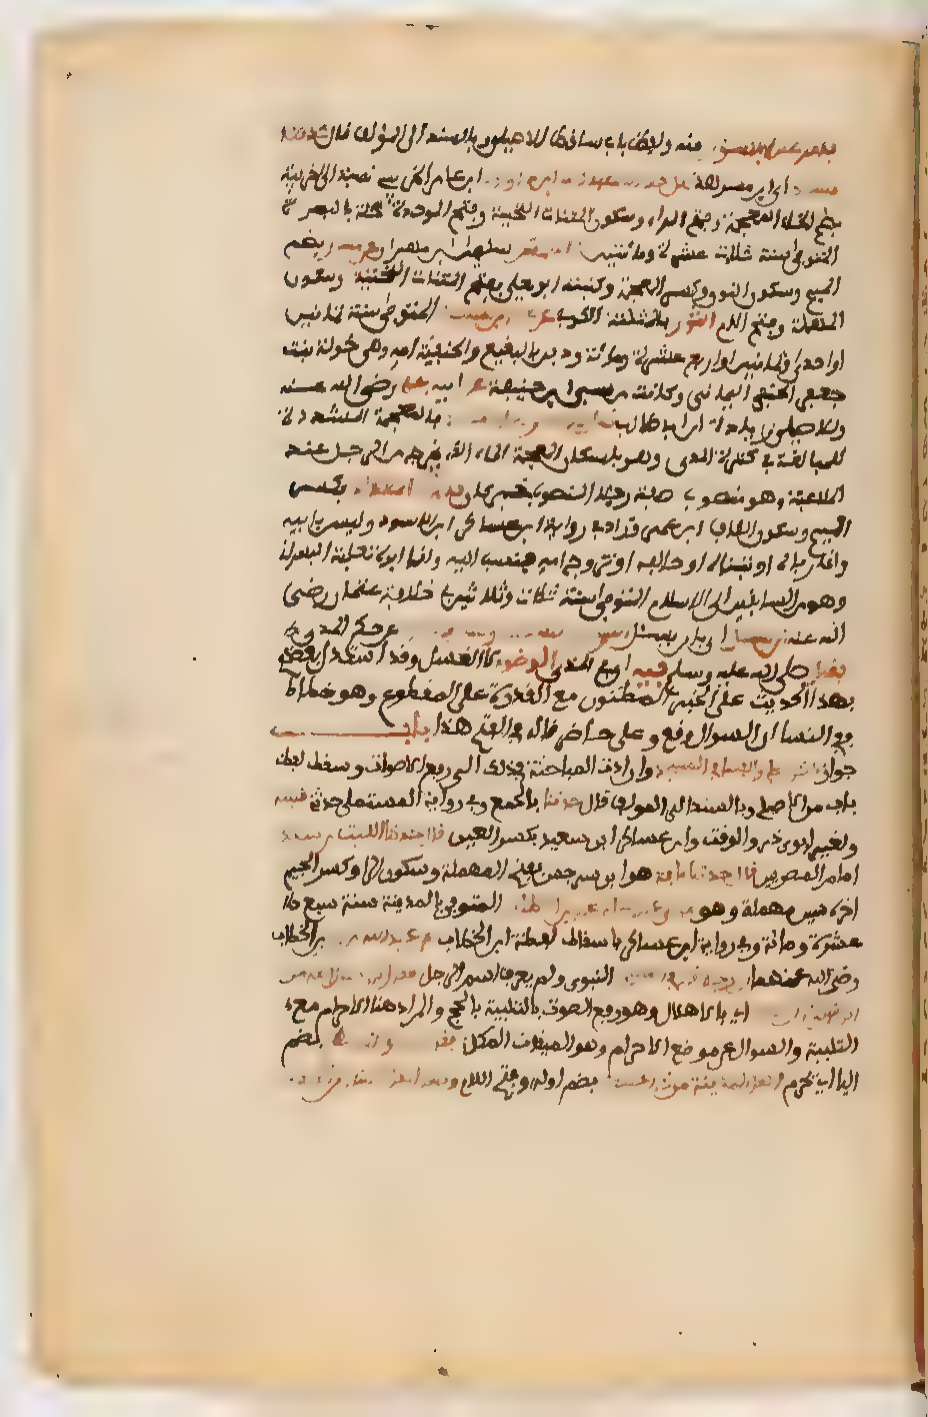 منه ولفظ باب ساقط للاصيلي وبالسند الى المؤلف قال حدثنا
مسدد اي ابن مسرهد قال حدثنا عبد الله بن داود ابن عامر الخريبي نسبة الى خريبة
بضم الخاء المعجمة وفتح الراء وسكون المثناة التحتية وفتح الموحدة محلة بالبصرة
المتوفى سنة ثلاث عشرة ومائتين الاعمش سليمان بن مهران عن منذر بضم
الميم وسكون النون وكسر المعجمة وكنيته ابو يعلى بفتح المثناة التحتية وسكون
المهملة وفتح اللام الثوري بالمثلثة الكوفي عن محمد بن الحنفية المتوفى سنة ثمانين
او احدى وثمانين او اربع عشرة ومائة ودفن بالبقيع والحنفية امه وهي خولة بنت
جعفر الحنفي اليمامي وكانت من سبي بني حنيفة عن ابيه علي رضي الله عنه
وللاصيلي زيادة ابن ابي طالب مذاء بالمعجمة المشددة
للمبالغة في كثرة المذي وهو باسكان المعجمة الماء الذي يخرج من الرجل عند
الملاعبة وهو منصوب صفة رجلا المنصوب خبر كان المقداد بكسر
الميم وسكون القاف ابن عمرو زاد في رواية ابن عساكر ابن الاسود وليس بابيه
وانما رباه او تبناه او حالفه او تزوج امه فنسب اليه وانما ابوه ثعلبة البهراني
وهو من السابقين الى الاسلام المتوفى سنة ثلاث وثلاثين في خلافة عثمان رضي
الله عنه ان يسال اي بان يسئل رسول الله صلى عن حكم المذي
فقال صلى الله عليه وسلم فيه اي في المذي الوضوء لا الغسل وقد استدل بعضهم
بهذا الحديث على الخبر المظنون مع القدرة على المقطوع وهو خطا
ففي النسا ان السؤال وقع وعلي حاضر قاله في الفتح هذا باب
جواز ذكر العلم والفتيا في المسجد وان ادت المباحثة في ذلك الى رفع الاصوات وسقط لفظ
باب من الاصلي وبالسند الى المؤلف قال حدثنا بالجمع وفي رواية المستملي حدثني قتيبة
ولغير ابوي ذر والوقت وابن عساكر ابن سعيد بكسر العين قال حدثنا الليث بن سعد
امام المصريين قال حدثنا نافع هو ابن سرجس بفتح المهملة وسكون الراء وكسر الجيم
اخره سين مهملة وهو مولى عبد الله بن عمر بن الخطاب المتوفى بالمدينة سنة سبع
عشرة ومائة وفي رواية ابن عساكر باسقاط لفظة ابن الخطاب عن عبد الله بن عمر بن الخطاب
رضي الله عنهما ان رجلا قام في المسجد النبوي ولم يعرف اسم الرجل فقال يا رسول الله من
اين تامرنا ان نهل اي بالاهلال وهو رفع الصوت بالتلبية بالحج والمراد هنا الاحرام مع
التلبية والسؤال عن موضع الاحرام وهو الميقات المكاني فقال يهل بضم
الياء اي يحرم اهل المدينة من ذي الحليفة بضم اوله وفتح اللام ويهل اهل الشام من